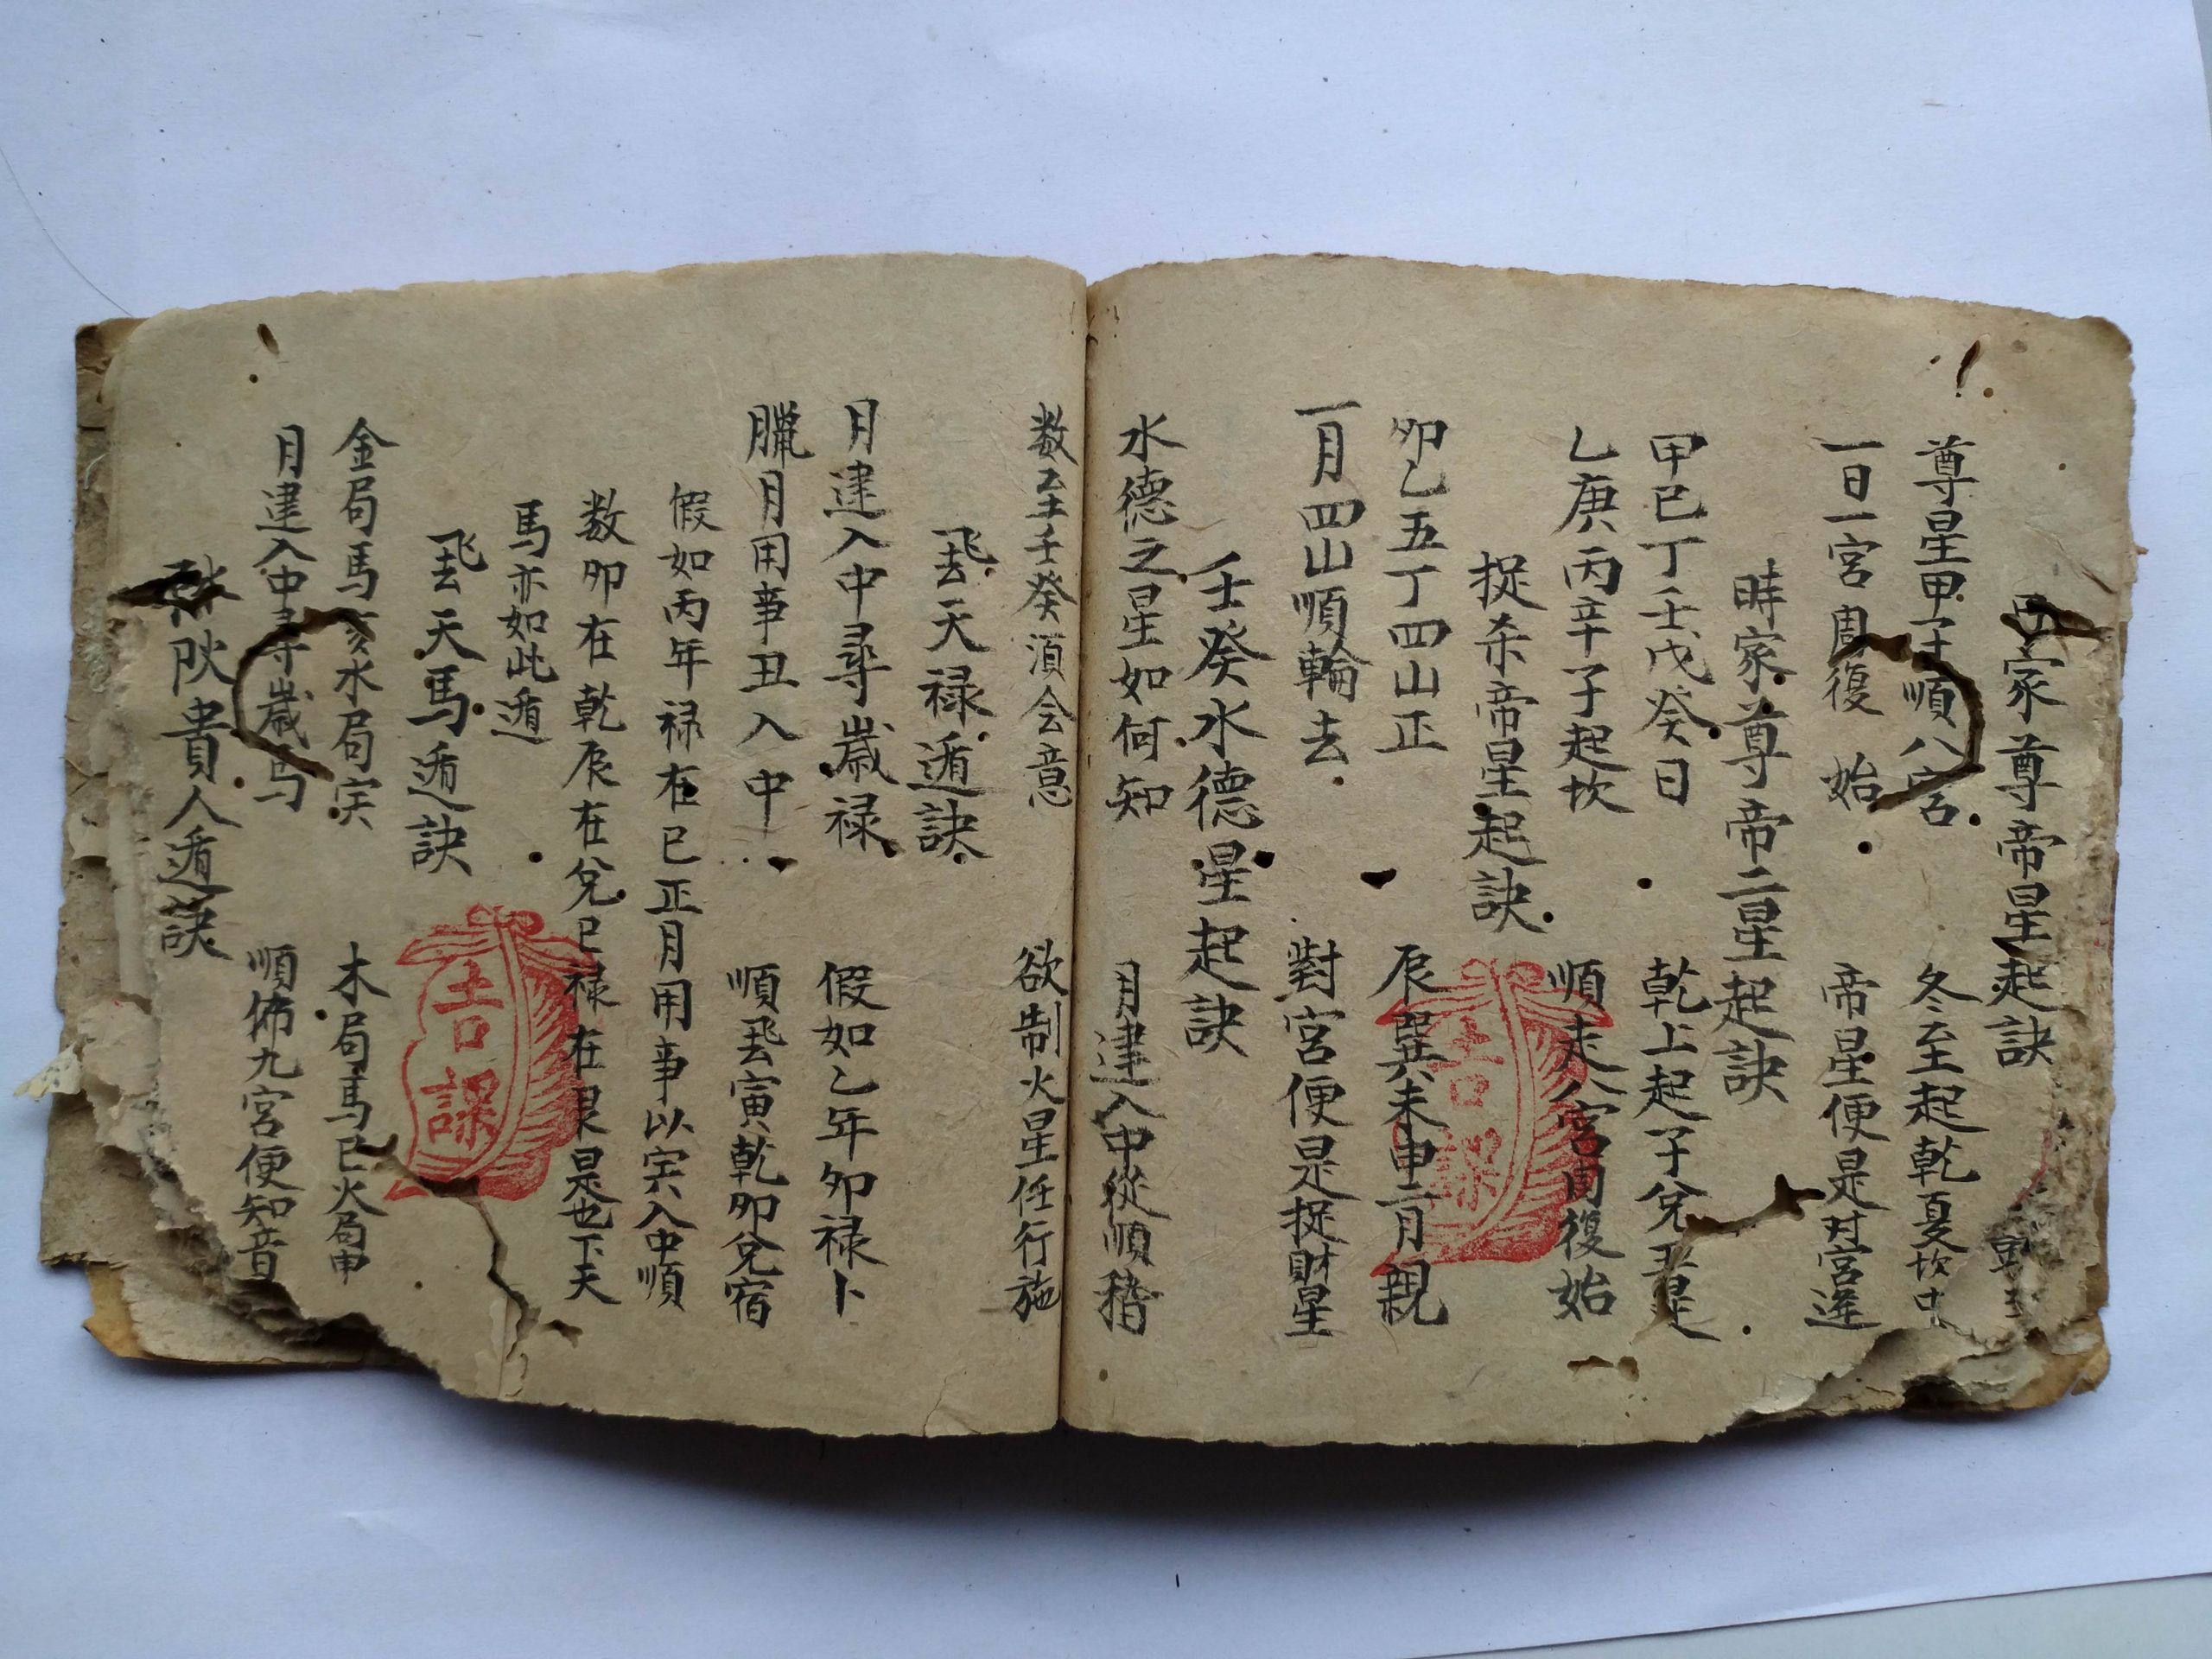 家尊帝星起訣
尊星甲子順八宮 冬至起乾夏坎
一日一宮周復始 帝星便是对宮迯
時家尊帝二星起訣
甲己丁壬戊癸日 乾上起子兌
乙庚丙辛子起坎 順走八宮周復始
捉杀帝星起訣
卯乙五丁四山正 辰巽未申二月親
一月四山順輪去 對宮便是捉財星
壬癸水德星起訣
水德之星如何知 月建入中從順稽
数至壬癸湏会意 欲制火星任行施
飛天禄遁訣
月建入中尋歲禄 假如乙年卯禄卜
臘月用事丑入中 順飛寅乾卯兌宿
假如丙年禄在巳正月用事以寅入中順
数卯在乾辰在兌巳禄在艮是也下天
馬亦如此遁
飛天馬遁訣
金局馬亥水局寅 木局馬巳火局申
月建入中尋歲马 順佈九宮便知音
貴人遁訣
吉課
吉課